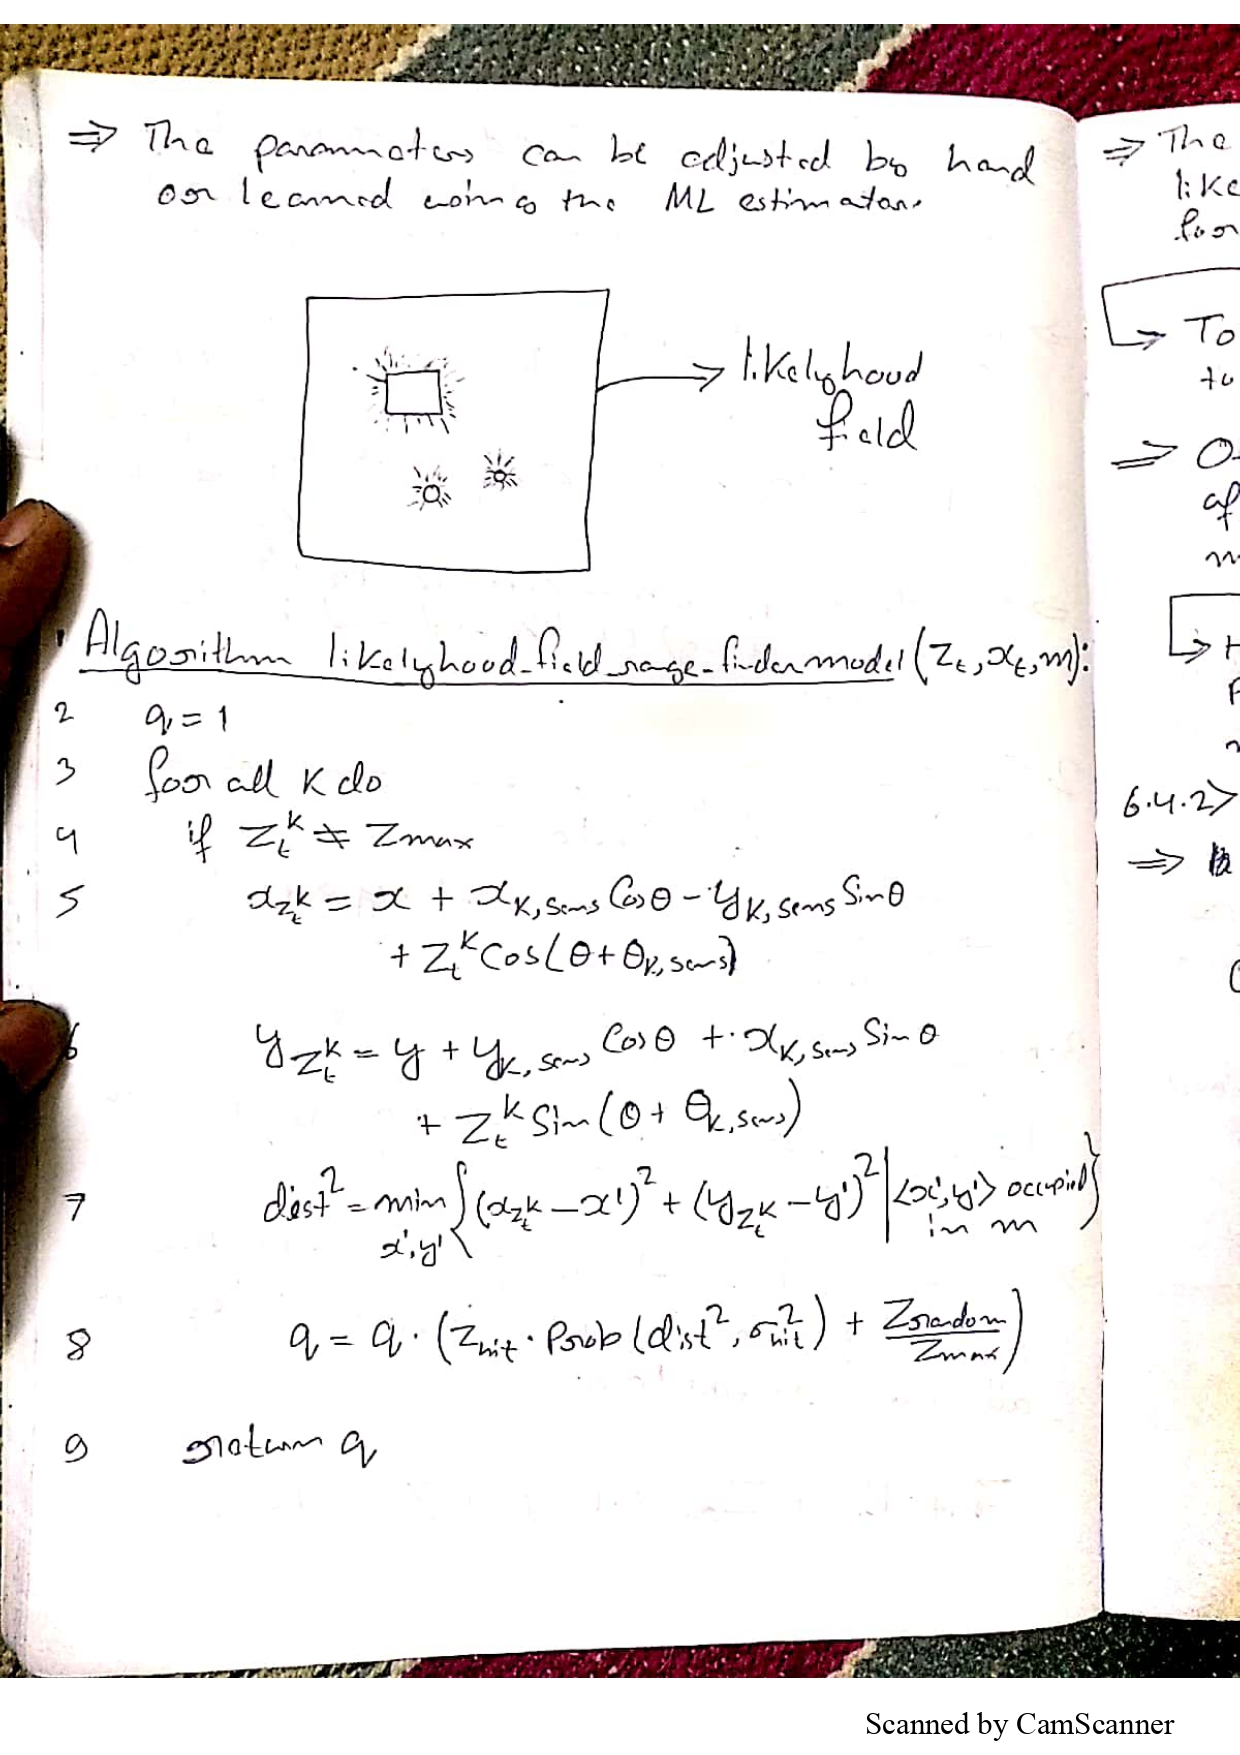 ⇒ The parameters can be adjusted by hand
or learned using the ML estimator.
likelyhood
field
1 Algorithm likelyhood_field_range_finder model (Z_t, x_t, m):
2 q = 1
3 for all K do
4 if Z_t^k ≠ Zmax
5 x_{Z_t^k} = x + x_{K,sens} Cosθ - y_{K,sens} Sinθ
+ Z_t^k Cos(θ + θ_{K,sens})
6 y_{Z_t^k} = y + y_{K,sens} Cosθ + x_{K,sens} Sinθ
+ Z_t^k Sin(θ + θ_{K,sens})
7 dist² = min_{x',y'} {(x_{Z_t^k} - x')² + (y_{Z_t^k} - y')² | <x',y'> occupied in m}
8 q = q · (Z_hit · Prob(dist², σ²_hit) + Zrandom/Zmax)
9 return q
⇒ The
like
for
To
to
6.4.2>
Scanned by CamScanner